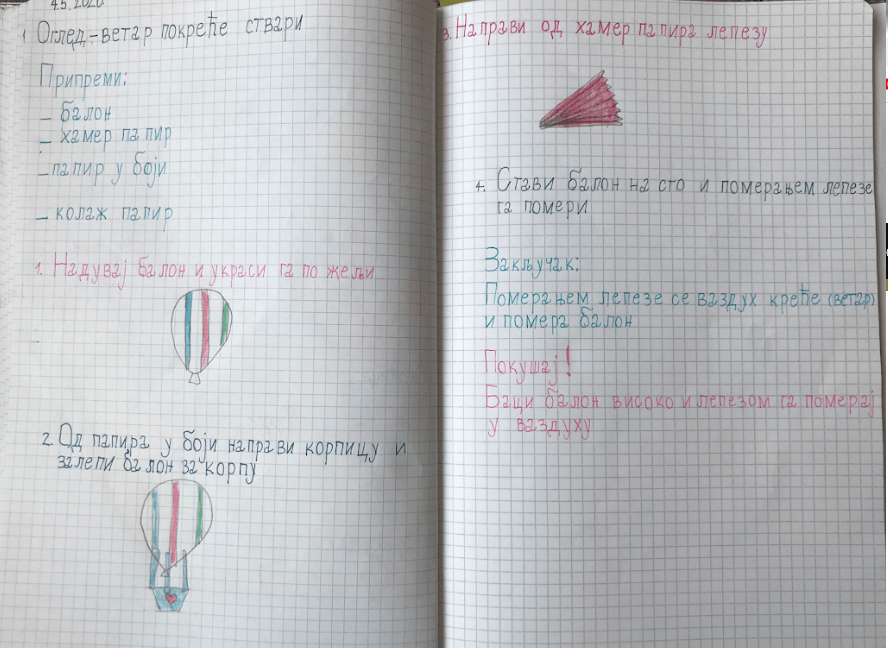 4.5.2020
Оглед-ветар покреће ствари
Припреми:
- балон
- хамер папир
- папир у боји
- колаж папир
1. Надувај балон и украси га по жељи
2. Од папира у боји направи корпицу и
залепи балон за корпу
3. Направи од хамер папира лепезу
4. Стави балон на сто и померањем лепезе
га помери
Закључак:
Померањем лепезе се ваздух креће (ветар)
и помера балон
Покушај!
Баци балон високо и лепезом га померај
у ваздуху